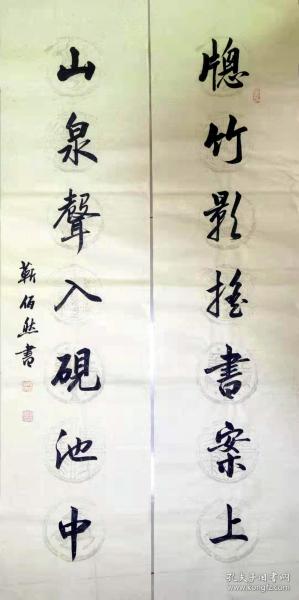 牕竹影摇書案上
山泉聲入硯池中
靳佰然書
孔夫子旧书网